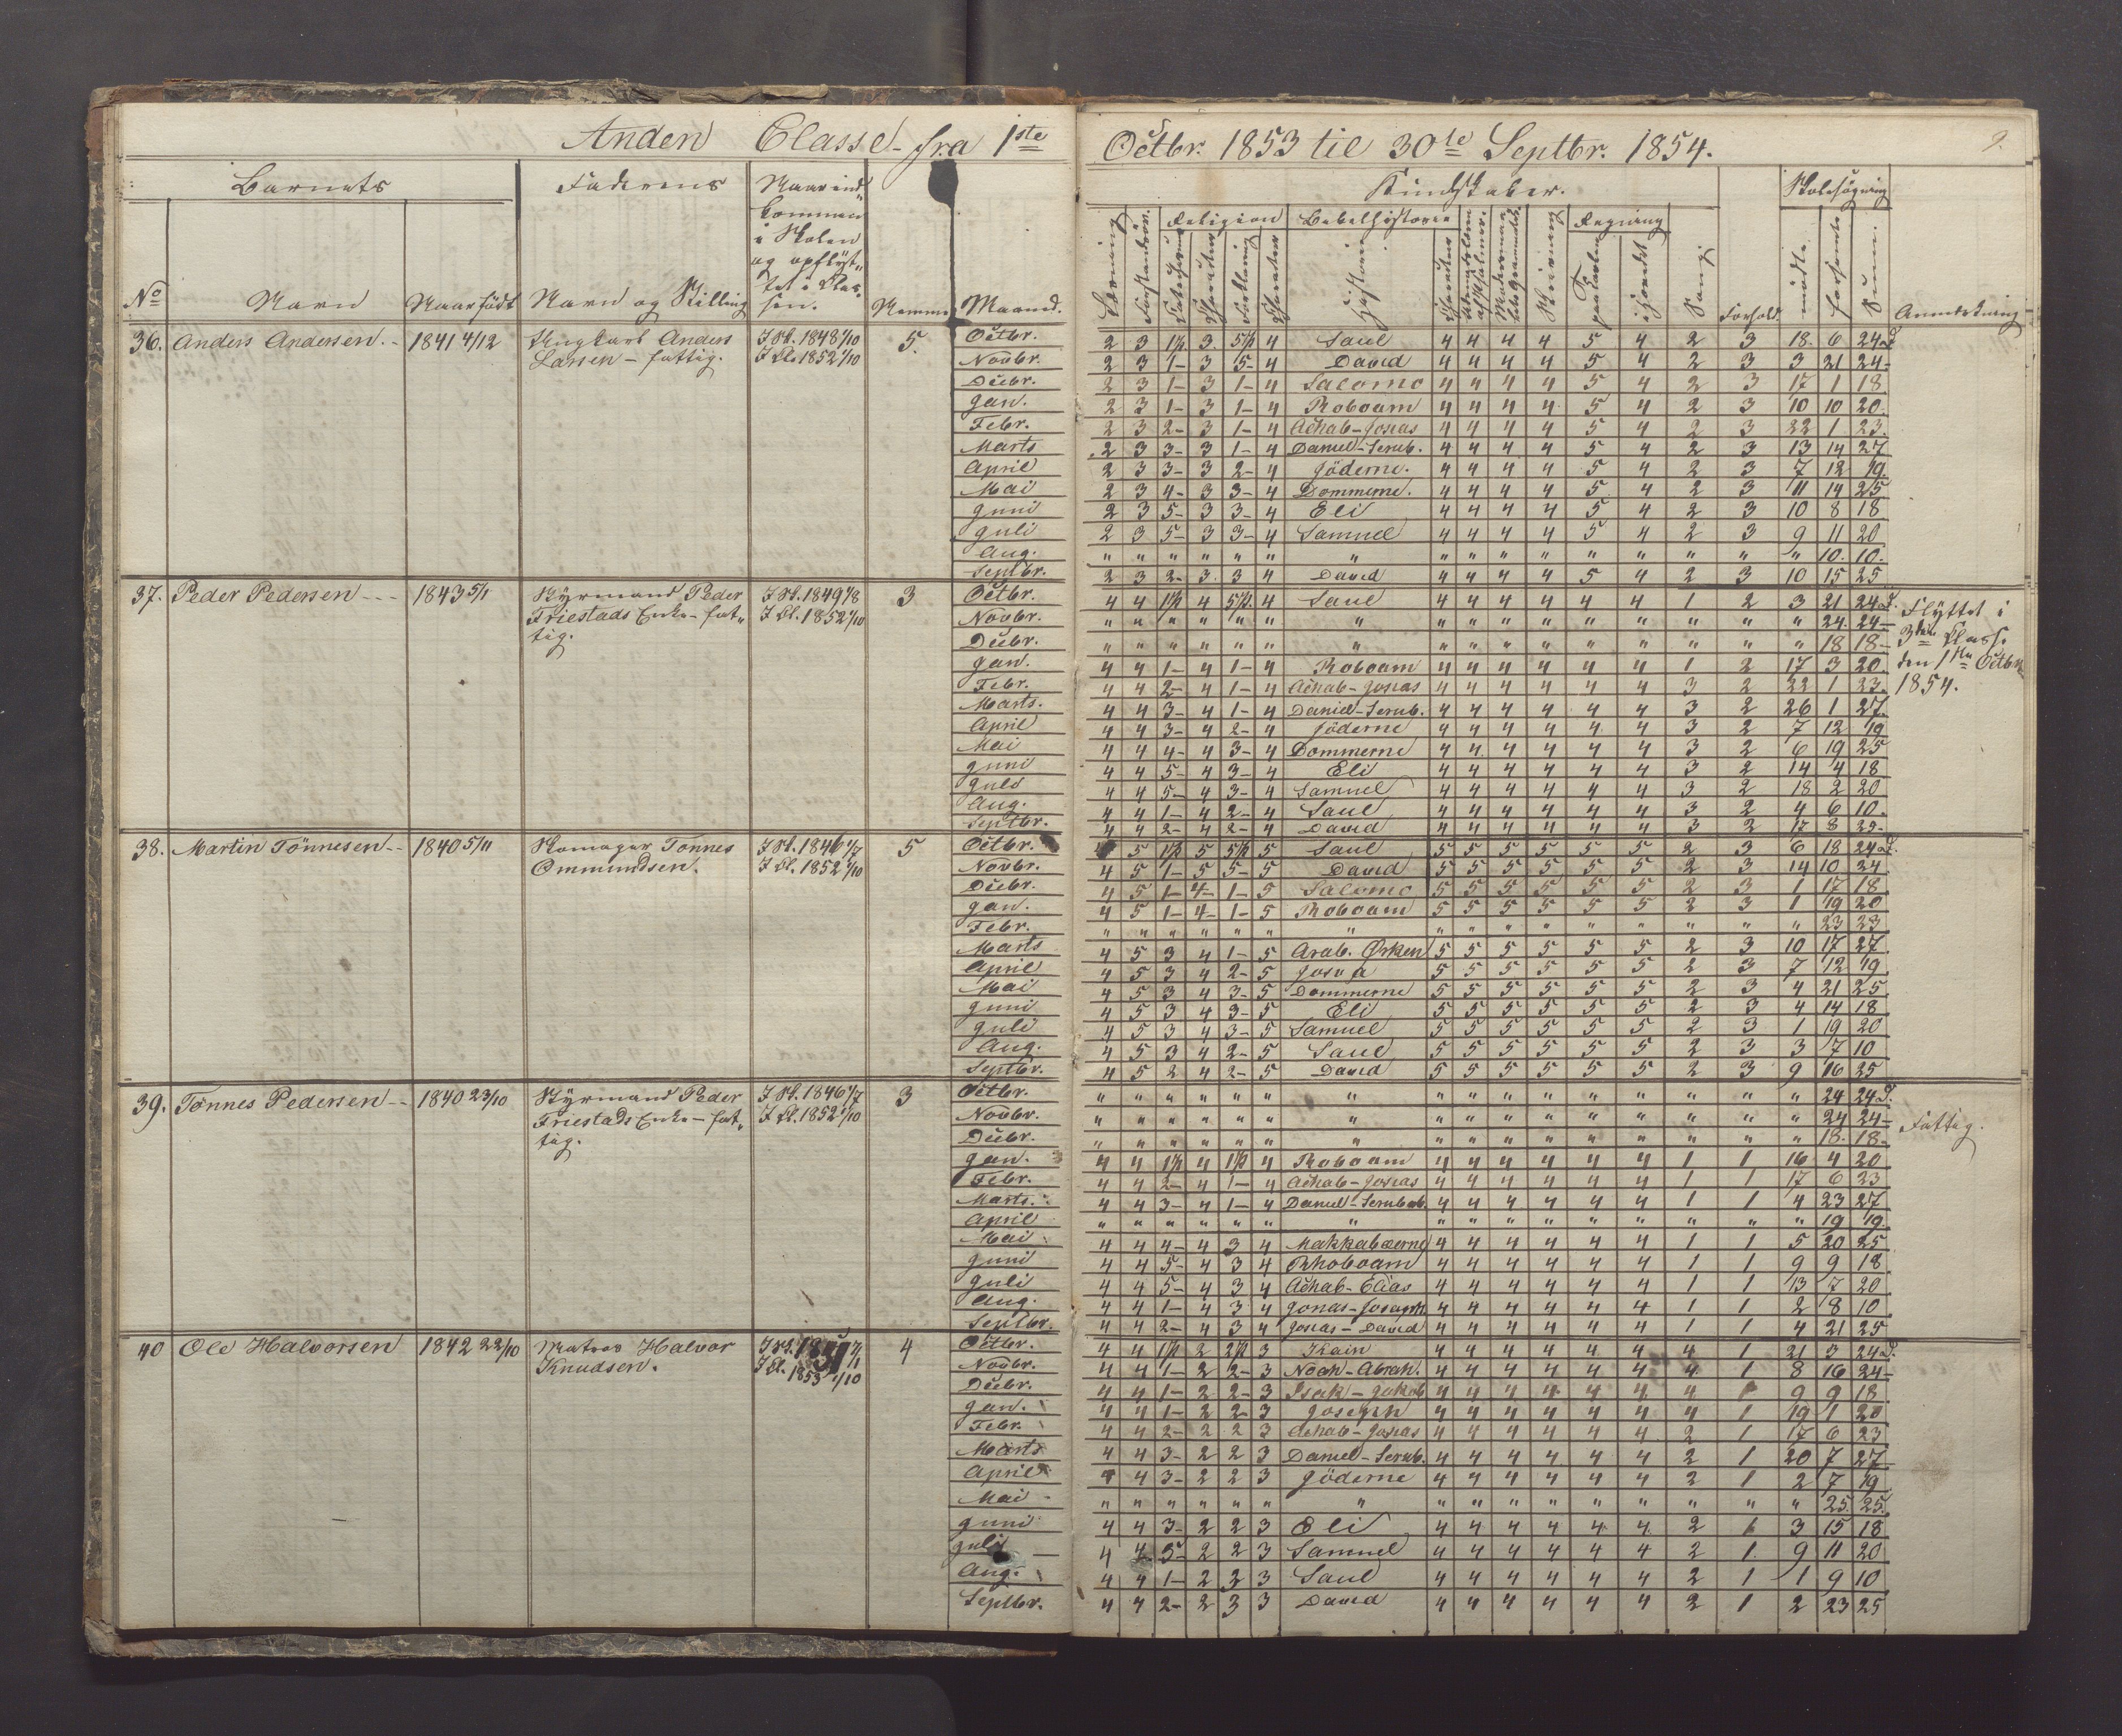 Anden Classe fra 1ste
Octbr. 1853 til 30te Septbr. 1854.
9.
Barnets
Faderens
Naar ind-
kommen
i Skolen
og opflyt-
tet i Clas-
sen.
No
Navn
Naar født
Navn og Stilling
Nemme
Maaned.
Kundskaber.
Skolesøgning
Religion
Bibelhistorie
Regning
Historie
Sang
Forhold
mødte
forsømte
Sum.
Anmærkning
36. Anders Andersen. - 1841 4/12
Anders
Larsen - fattig.
I Sk. 1848 1/10
I Cl. 1852 1/10
5.
Octbr. 2 3 1½ 3 5½ 4 Saul 4 4 4 4 5 4 2 3 18. 6 24 d.
Novbr. 2 3 1- 3 5- 4 David 4 4 4 4 5 4 2 3 3 21 24-
Decbr. 2 3 1- 3 1- 4 Salomo 4 4 4 4 5 4 2 3 17 1 18
Jan. 2 3 1- 3 1- 4 Roboam 4 4 4 4 5 4 2 3 10 10 20.
Febr. 2 3 2- 3 1- 4 Achab-Josias 4 4 4 4 5 4 2 3 22 1 23.
Marts 2 3 3- 3 1- 4 Daniel-Serub. 4 4 4 4 5 4 2 3 13 14 27
April 2 3 3- 3 2- 4 Jøderne. 4 4 4 4 5 4 2 3 7 12 19
Mai 2 3 4- 3 3- 4 Dommerne. 4 4 4 4 5 4 2 3 11 14 25
Juni 2 3 5- 3 3- 4 Eli 4 4 4 4 5 4 2 3 10 8 18
Juli 2 3 5- 3 3- 4 Samuel 4 4 4 4 5 4 2 3 9 11 20
Aug. " " " " " " " " " " " " " " " " 10. 10.
Septbr. 2 3 2- 3. 3 4 David 4 4 4 4 5 4 2 3 10 15 25
37. Peder Pedersen - - - 1843 5/1
Styrmand Peder
Friestads Enke - fat-
tig.
I Sk. 1849 1/8
I Cl. 1852 1/10
3
Octbr. 4 4 1½ 4 5½ 4 Saul 4 4 4 4 4 4 1 2 3 21 24 d.
Novbr. " " " " " " " " " " " " " " " " 24. 24-
Decbr. " " " " " " " " " " " " " " " " 18 18-
Jan. 4 4 1- 4 1- 4 Roboam 4 4 4 4 4 4 1 2 17 3 20.
Febr. 4 4 2- 4 1- 4 Achab-Josias 4 4 4 4 4 4 3 2 22 1 23.
Marts. 4 4 3- 4 1- 4 Daniel-Serub. 4 4 4 4 4 4 3 2 26 1 27.
April 4 4 3- 4 2- 4 Jøderne 4 4 4 4 4 4 3 2 7 12 19
Mai 4 4 4- 4 3- 4 Dommerne 4 4 4 4 4 4 3 2 6 19 25
Juni 4 4 5- 4 3- 4 Eli 4 4 4 4 4 4 3 2 14 4 18
Juli 4 4 5- 4 3- 4 Samuel 4 4 4 4 4 4 3 2 18 2 20
Aug. 4 4 1- 4 2- 4 Saul 4 4 4 4 4 4 3 2 4 6 10.
Septbr. 4 4 2- 4 2- 4 David 4 4 4 4 4 4 3 2 17 8 25-
Flyttet i
3die Classe
den 1ste Octbr.
1854.
38. Martin Tönnesen - - 1840 5/11
Skomager Tønnes
Ommundsen.
I Sk. 1846 1/7
I Cl. 1852 1/10
5
Octbr. 5 1½ 5 5½ 5 Saul 5 5 5 5 5 5 2 3 6 18 24 d.
Novbr. 4 5 1- 5 5- 5 David 5 5 5 5 5 5 2 3 14 10 24
Decbr. 4 5 1- 4- 1- 5 Salomo 5 5 5 5 5 5 2 3 1 17 18
Jan. 4 5 1- 4- 1- 5 Roboam 5 5 5 5 5 5 2 3 1 19 20
Febr. " " " " " " " " " " " " " " " " 23 23
Marts 4 5 3 4 1- 5 Arab. Ørken 5 5 5 5 5 5 2 3 10 17 27
April 4 5 3 4 2- 5 Josva 5 5 5 5 5 5 2 3 7 12 19
Mai 4 5 3 4 3- 5 Dommerne 5 5 5 5 5 5 2 3 4 21 25
Juni 4 5 3 4 3- 5 Eli 5 5 5 5 5 5 2 3 4 14 18
Juli 4 5 3 4 3- 5 Samuel 5 5 5 5 5 5 2 3 1 19 20
Aug. 4 5 3 4 2- 5 Saul 5 5 5 5 5 5 2 3 3 7 10
Septbr. 4 5 2 4 2- 5 David 5 5 5 5 5 5 2 3 9 16 25
39. Tønnes Pedersen - - 1840 23/10
Styrmand Peder
Friestads Enke - fat-
tig.
I Sk. 1846 1/7
I Cl. 1852 1/10
3
Octbr. " " " " " " " " " " " " " " " " 24 24 d.
Novbr. " " " " " " " " " " " " " " " " 24 24-
Decbr. " " " " " " " " " " " " " " " " 18. 18-
Jan. 4 4 1½ 4 1½ 4 Roboam 4 4 4 4 4 4 1 1 16 4 20
Febr. 4 4 2- 4 1- 4 Achab-Josias 4 4 4 4 4 4 1 1 17 6 23
Marts. 4 4 3- 4 1- 4 Daniel-Serubab. 4 4 4 4 4 4 1 1 4 23 27
April " " " " " " " " " " " " " " " " 19 19.
Mai 4 4 4- 4 3 4 Makkabæerne 4 4 4 4 4 4 1 1 5 20 25
Juni 4 4 5- 4 3 4 Rhoboam 4 4 4 4 4 4 1 1 9 9 18
Juli 4 4 5- 4 3 4 Achab-Elias 4 4 4 4 4 4 1 1 13 7 20
Aug. 4 4 1- 4 3 4 Jonas- 4 4 4 4 4 4 1 1 2 8 10
Septbr. 4 4 2- 4 3 4 Josias-David 4 4 4 4 4 4 1 1 4 21 25
Fattig.
40 Ole Halvorsen 1842 22/10
Matros Halvor
Knudsen.
I Sk.
I Cl. 1853 1/10
4
Octbr. 4 4 1½ 2 2½ 3 Kain 4 4 4 4 4 4 4 1 21 3 24 d.
Novbr. 4 4 1- 2 2- 3 Noah-Abrah. 4 4 4 4 4 4 4 1 8 16 24-
Decbr. 4 4 1- 2 2- 3 Isak-Jakob 4 4 4 4 4 4 4 1 9 9 18
Jan. 4 4 1- 2 2- 3 Joseph 4 4 4 4 4 4 4 1 19 1 20
Febr. 4 4 2- 2 2 3 Achab-Josias 4 4 4 4 4 4 2 1 17 6 23
Marts 4 4 3- 2 2 3 Daniel-Serub. 4 4 4 4 4 4 2 1 20 7 27
April 4 4 3- 2 2 3 Jøderne 4 4 4 4 4 4 2 1 2 7 19
Mai " " " " " " " " " " " " " " " " 25. 25.
Juni 4 4 3- 2 2 3 Eli 4 4 4 4 4 4 2 1 3 15 18
Juli 4 4 5- 2 2 3 Samuel 4 4 4 4 4 4 2 1. 9 11 20
Aug. 4 4 1- 2 2 3 Saul 4 4 4 4 4 4 2 1 1 9 10
Septbr. 4 4 2- 2 3 3 David 4 4 4 4 4 4 2 1 2 23 25